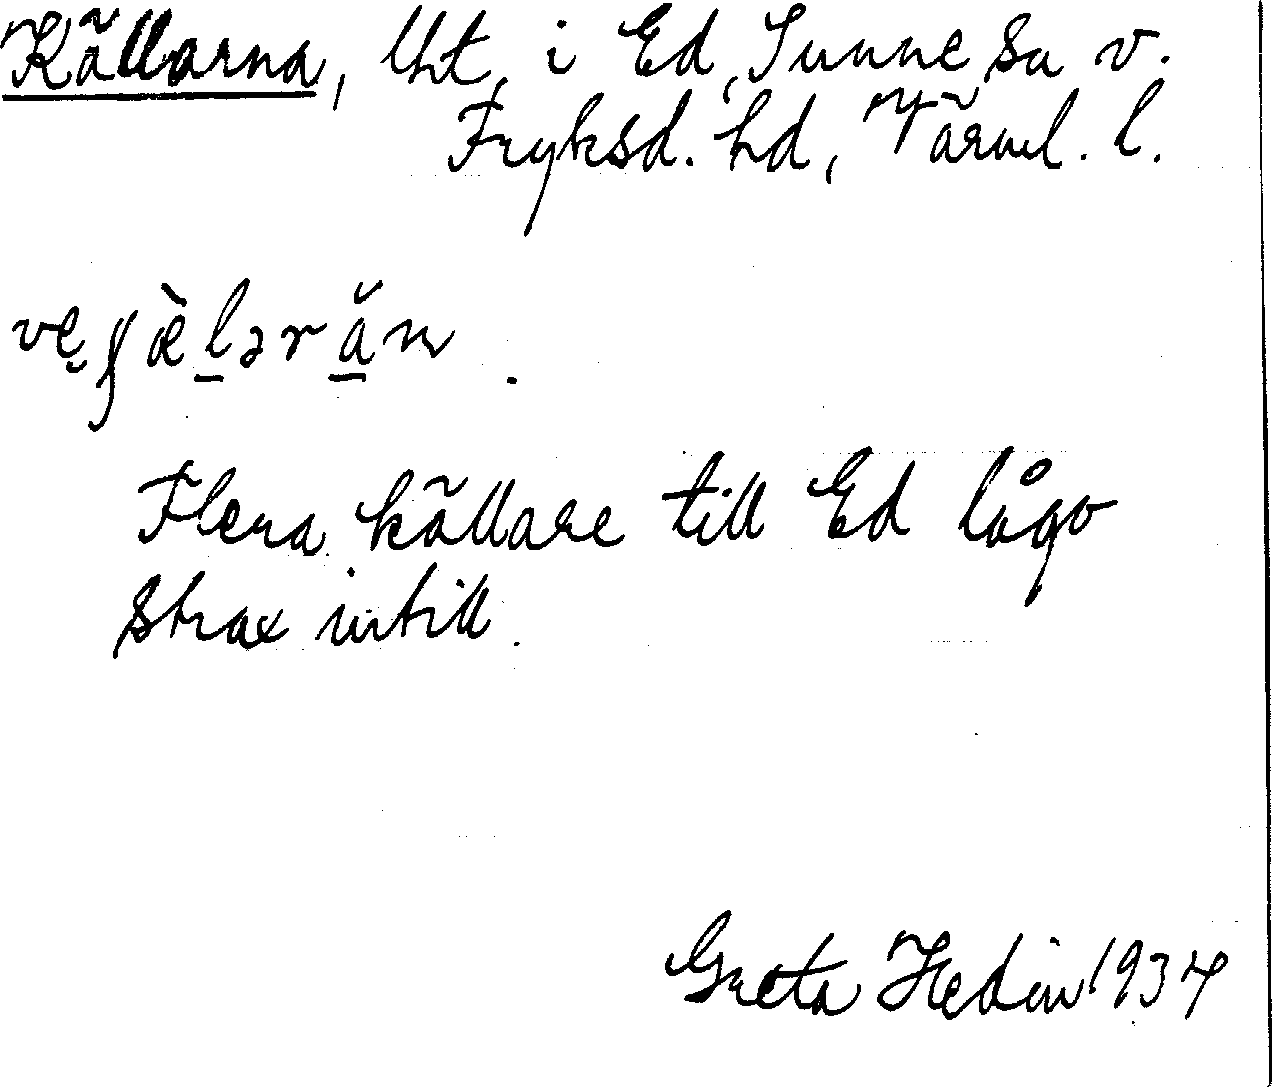 Källarna, lht. i Ed, Sunne sn v.
Fryksd. hd, Värml. l.
Flera källare till Ed lågo
strax intill.
Greta Hedin 1934